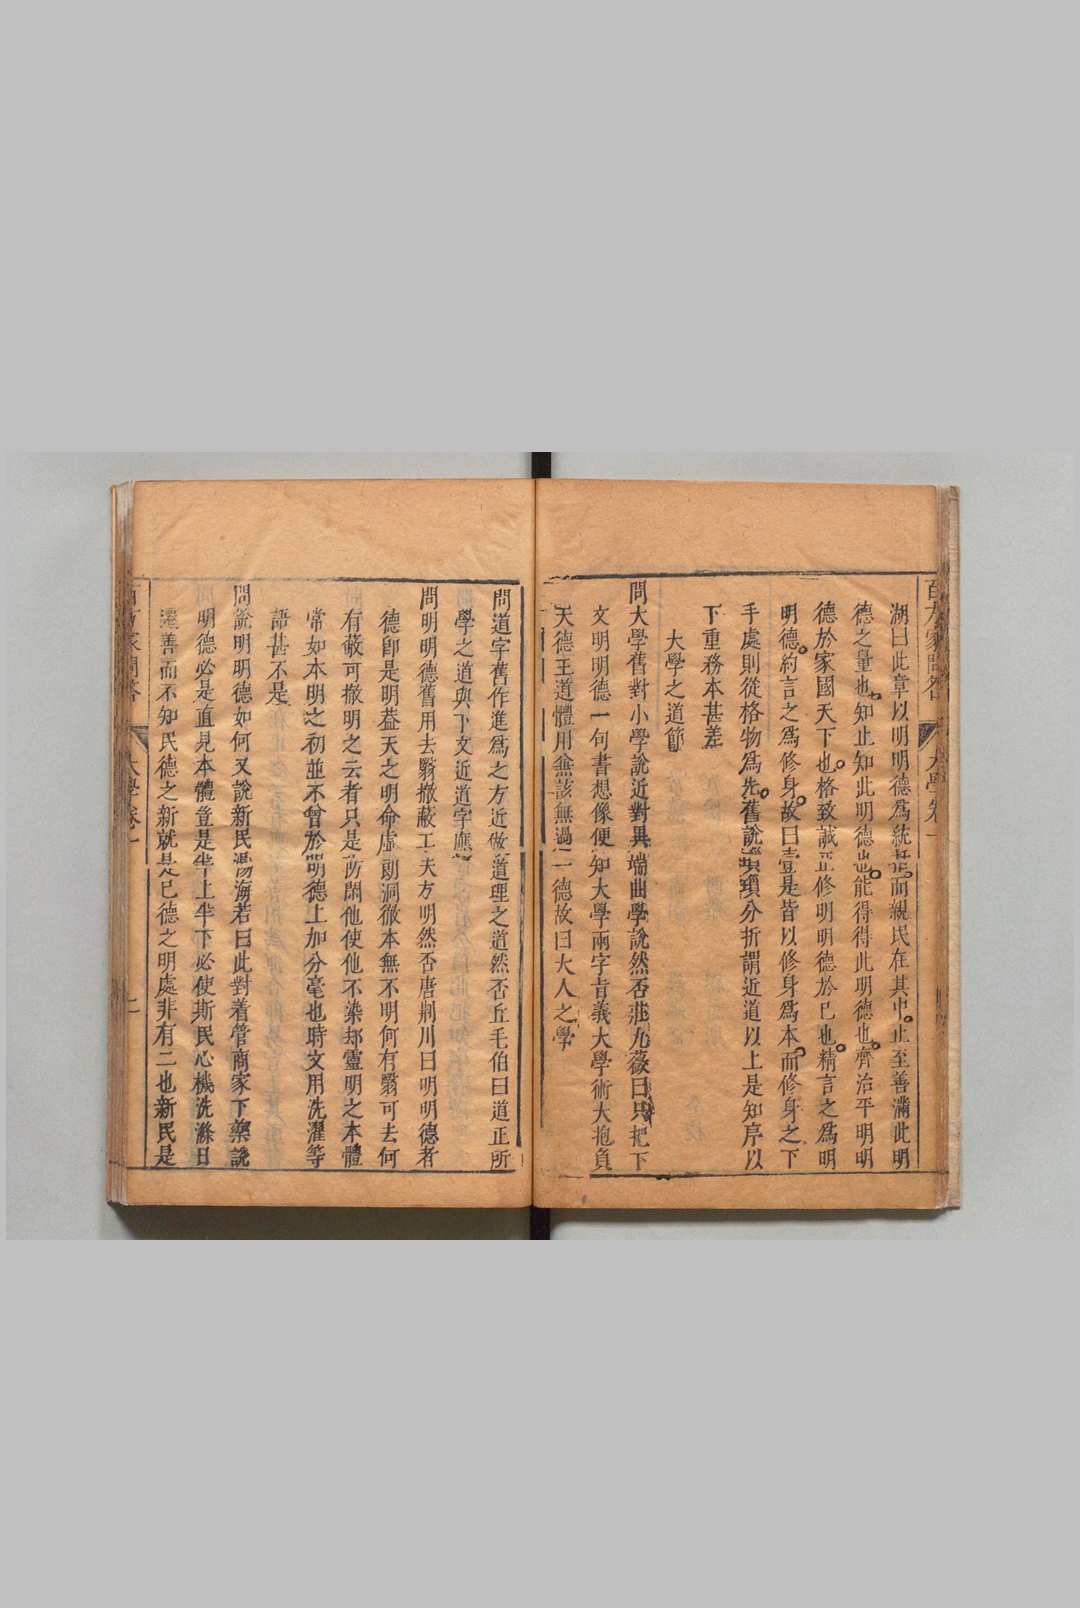 湖曰此章以明明德爲統而親民在其中止至善滿此明
德之量也知止知此明德也能得得此明德也齊治平明明
德於家國天下也格致誠正修明明德於已也精言之爲明
明德約言之爲修身故曰壹是皆以修身爲本而修身之下
手處則從格物爲先舊說瑣瑣分折謂近道以上是知序以
下重務本甚差
大學之道節
問大學舊對小學說近對異端曲學說然否莊九薇曰只把下
文明明德一句書想像便知大學兩字旨義大學術大抱負
天德王道體用兼該無過一德故曰大人之學
問道字舊作進爲之方近做道理之道然否丘毛伯曰道正所
學之道與下文近道字應
問明明德舊用去翳撤蔽工夫方明然否唐荆川曰明明德者
德卽是明葢天之明命虛朗洞徹本無不明何有翳可去何
有蔽可撤明之云者只是防閑他使他不染却靈明之本體
常如本明之初並不曾於明德上加分毫也時文用洗濯等
語甚不是
問說明明德如何又說新民湯海若曰此對着管商家下藥說
明德必是直見本體豈是半上半下必使斯民心機洗滌日
遷善而不知民德之新就是已德之明處非有二也新民是
大學卷一